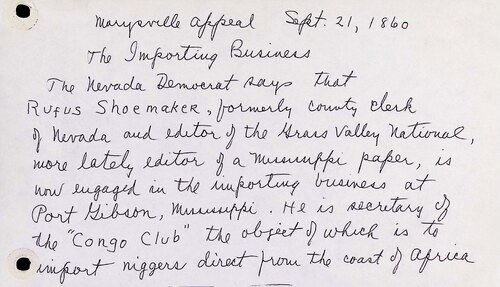 Marysville Appeal Sept. 21, 1860
The Importing Business
The Nevada Democrat says that
Rufus Shoemaker, formerly county clerk
of Nevada and editor of the Grass Valley National,
more lately editor of a Mississippi paper, is
now engaged in the importing business at
Port Gibson, Mississippi. He is secretary of
the "Congo Club" the object of which is to
import niggers direct from the coast of Africa